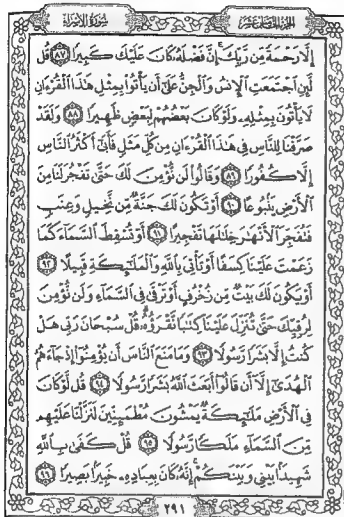 الجزء الخامس عشر
سورة الإسراء
إِلَّا رَحْمَةً مِّن رَّبِّكَ إِنَّ فَضْلَهُ كَانَ عَلَيْكَ كَبِيرًا ﴿٨٧﴾ قُل
لَّئِنِ ٱجْتَمَعَتِ ٱلْإِنسُ وَٱلْجِنُّ عَلَىٰ أَن يَأْتُوا۟ بِمِثْلِ هَٰذَا ٱلْقُرْءَانِ
لَا يَأْتُونَ بِمِثْلِهِۦ وَلَوْ كَانَ بَعْضُهُمْ لِبَعْضٍ ظَهِيرًا ﴿٨٨﴾ وَلَقَدْ
صَرَّفْنَا لِلنَّاسِ فِى هَٰذَا ٱلْقُرْءَانِ مِن كُلِّ مَثَلٍ فَأَبَىٰٓ أَكْثَرُ ٱلنَّاسِ
إِلَّا كُفُورًا ﴿٨٩﴾ وَقَالُوا۟ لَن نُّؤْمِنَ لَكَ حَتَّىٰ تَفْجُرَ لَنَا مِنَ
ٱلْأَرْضِ يَنۢبُوعًا ﴿٩٠﴾ أَوْ تَكُونَ لَكَ جَنَّةٌ مِّن نَّخِيلٍ وَعِنَبٍ
فَتُفَجِّرَ ٱلْأَنْهَٰرَ خِلَٰلَهَا تَفْجِيرًا ﴿٩١﴾ أَوْ تُسْقِطَ ٱلسَّمَآءَ كَمَا
زَعَمْتَ عَلَيْنَا كِسَفًا أَوْ تَأْتِىَ بِٱللَّهِ وَٱلْمَلَٰٓئِكَةِ قَبِيلًا ﴿٩٢﴾
أَوْ يَكُونَ لَكَ بَيْتٌ مِّن زُخْرُفٍ أَوْ تَرْقَىٰ فِى ٱلسَّمَآءِ وَلَن نُّؤْمِنَ
لِرُقِيِّكَ حَتَّىٰ تُنَزِّلَ عَلَيْنَا كِتَٰبًا نَّقْرَؤُهُۥ قُلْ سُبْحَانَ رَبِّى هَلْ
كُنتُ إِلَّا بَشَرًا رَّسُولًا ﴿٩٣﴾ وَمَا مَنَعَ ٱلنَّاسَ أَن يُؤْمِنُوٓا۟ إِذْ جَآءَهُمُ
ٱلْهُدَىٰٓ إِلَّآ أَن قَالُوٓا۟ أَبَعَثَ ٱللَّهُ بَشَرًا رَّسُولًا ﴿٩٤﴾ قُل لَّوْ كَانَ
فِى ٱلْأَرْضِ مَلَٰٓئِكَةٌ يَمْشُونَ مُطْمَئِنِّينَ لَنَزَّلْنَا عَلَيْهِم
مِّنَ ٱلسَّمَآءِ مَلَكًا رَّسُولًا ﴿٩٥﴾ قُلْ كَفَىٰ بِٱللَّهِ
شَهِيدًۢا بَيْنِى وَبَيْنَكُمْ إِنَّهُۥ كَانَ بِعِبَادِهِۦ خَبِيرًۢا بَصِيرًا ﴿٩٦﴾
٢٩١